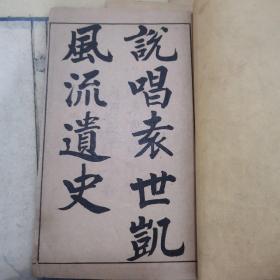 說唱袁世凱
風流遺史